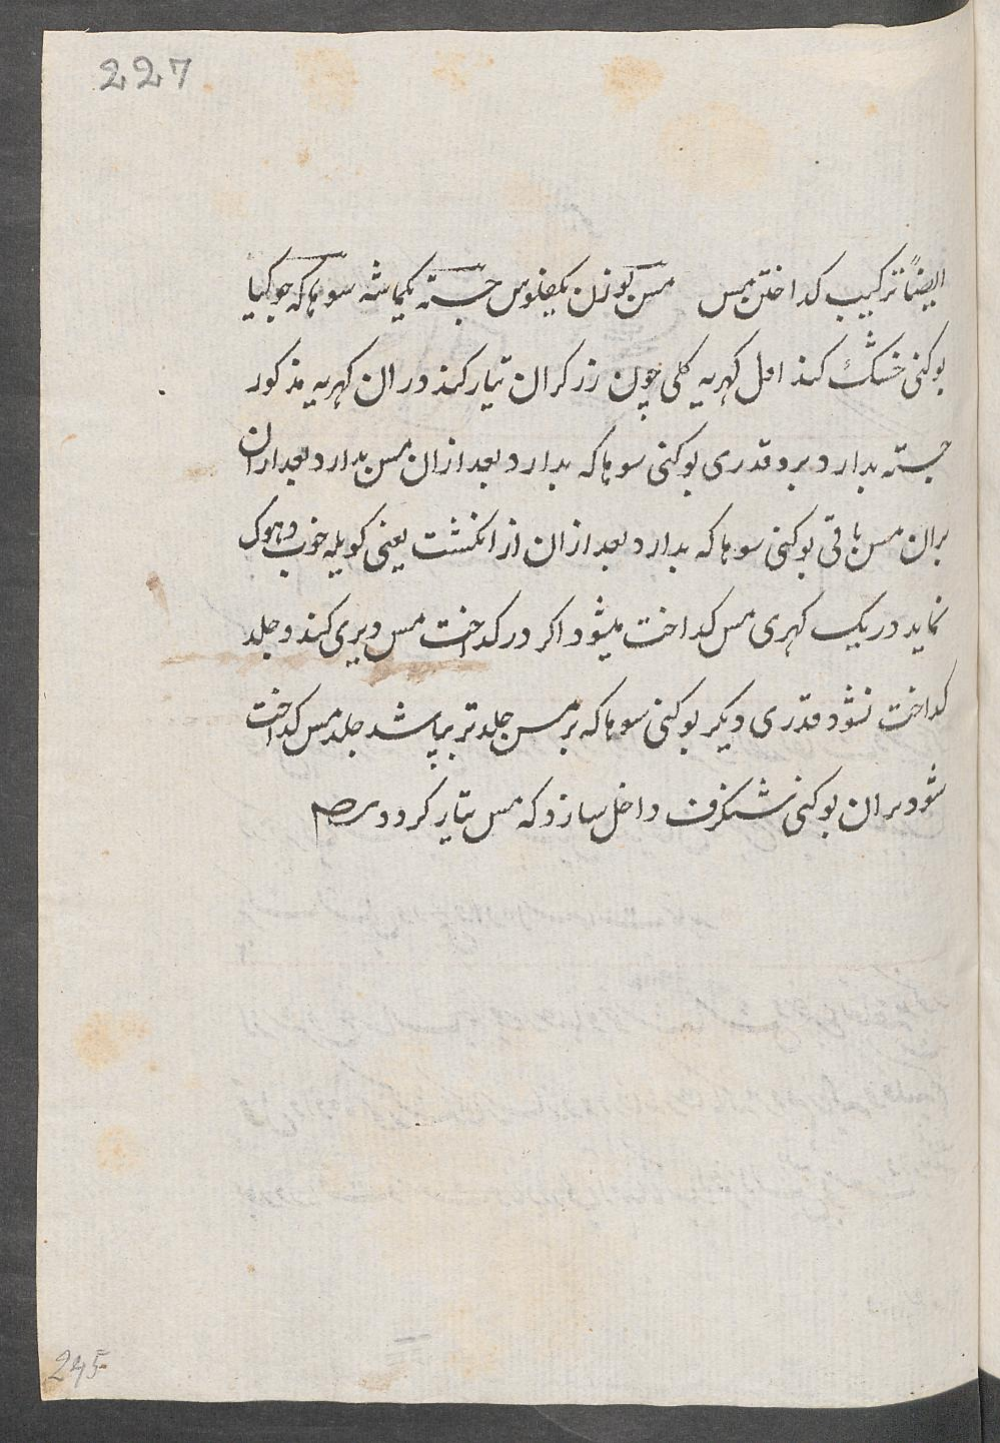 227
ایضاً ترکیب کداختن مس مس بوزن یکفلوس جسته یکماشه سوهاکه چوکیا
بوکنی خشک کند اول کهریه کلی چون زرکران تیار کند در ان کهریه مذکور
جسته بدارد برو قدری بوکنی سوهاکه بدارد بعد ازان مس بدارد بعد ازان
بران مس باقی بوکنی سوهاکه بدارد بعد ازان از انکشت یعنی کویله خوب دهوک
نماید در یک کهری مس کداخت میشود اکر در کداخت مس دیری کند و جلد
کداخت نشود قدری دیکر بوکنی سوهاکه بر مس جلدتر بپاشد جلد مس کداخت
شود بران بوکنی شنکرف داخل سازد که مس تیار کردد
245